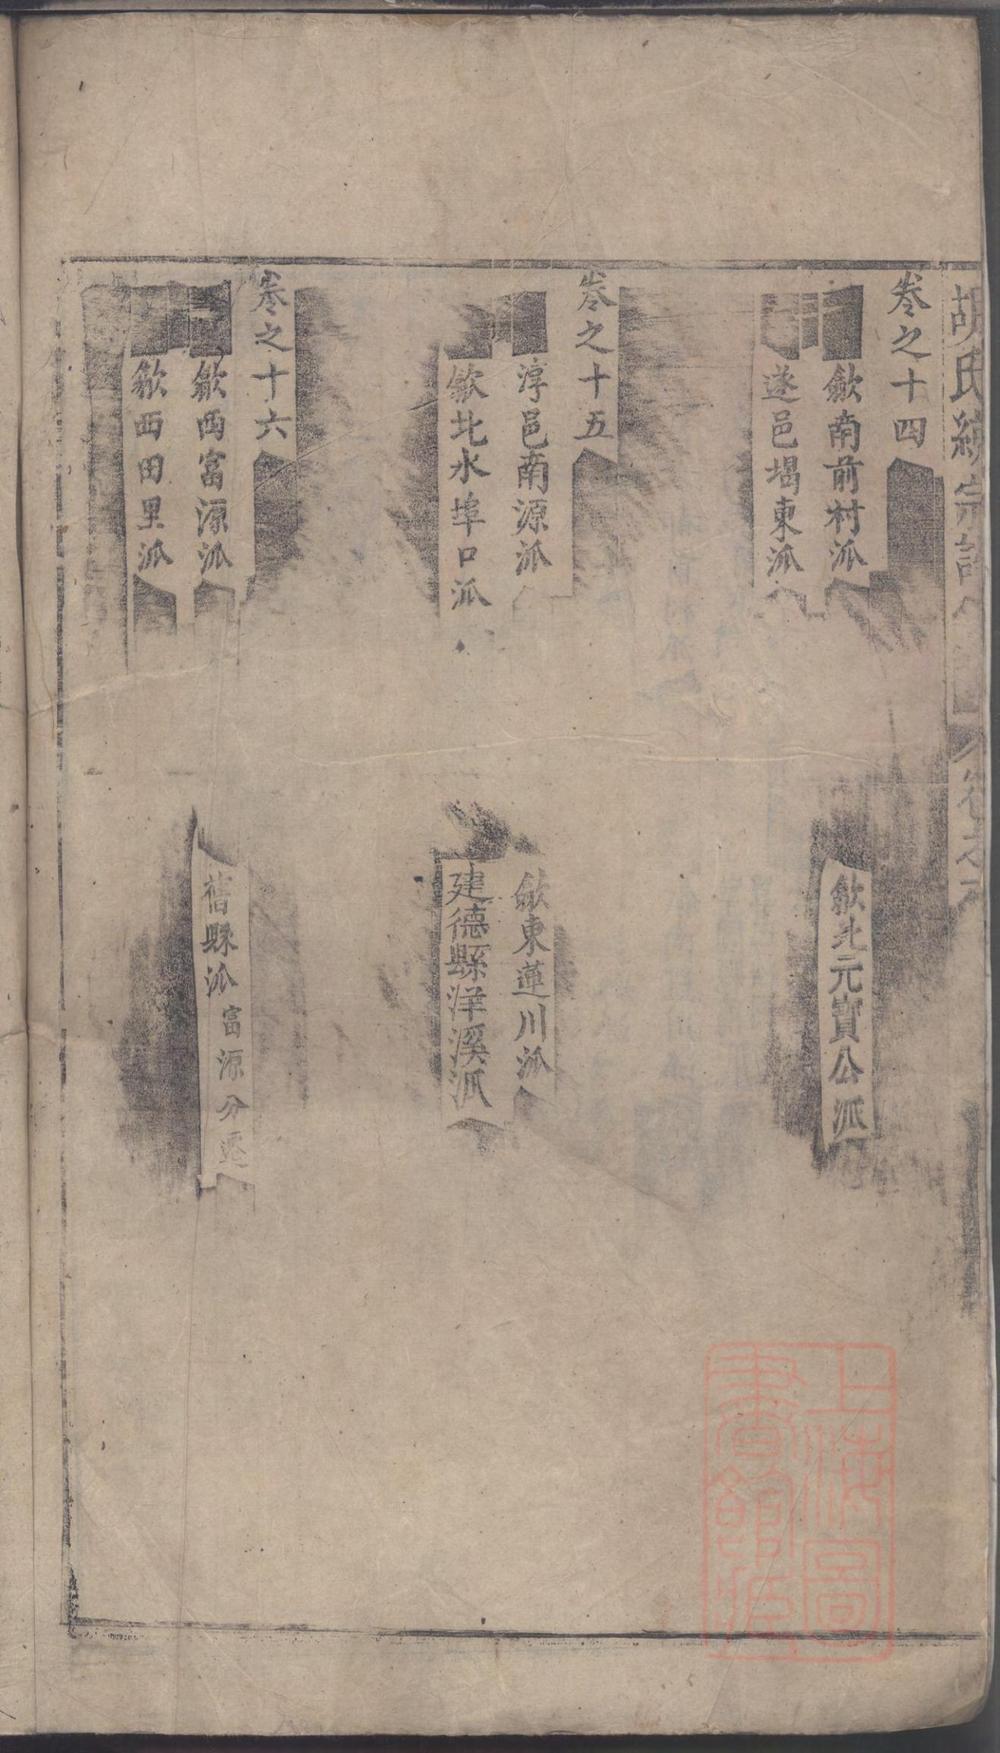 胡氏統宗譜
卷之十四
歙南前村派
歙北元寶公派
遂邑堨東派
卷之十五
淳邑南源派
歙東蓮川派
歙北水埠口派
建德縣洋溪派
卷之十六
歙西富源派
舊縣派富源分遷
歙西田里派
上海圖書館藏